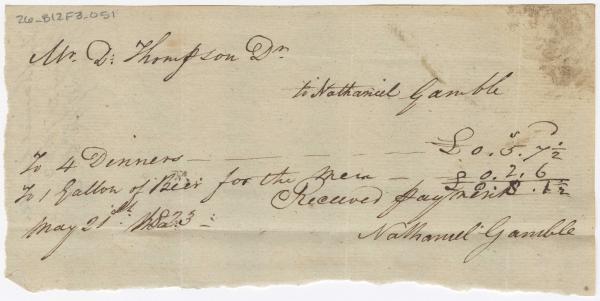 26_B12F3_051
Mr. D: Thompson Dr.
to Nathaniel Gamble
To 4 Dinners — — — £ 0. 5. 7 ½
To 1 Gallon of Beer for the men — £ 0. 2. 6
£ 0. 8. 1 ½
Received payment
May 21st
Nathaniel Gamble